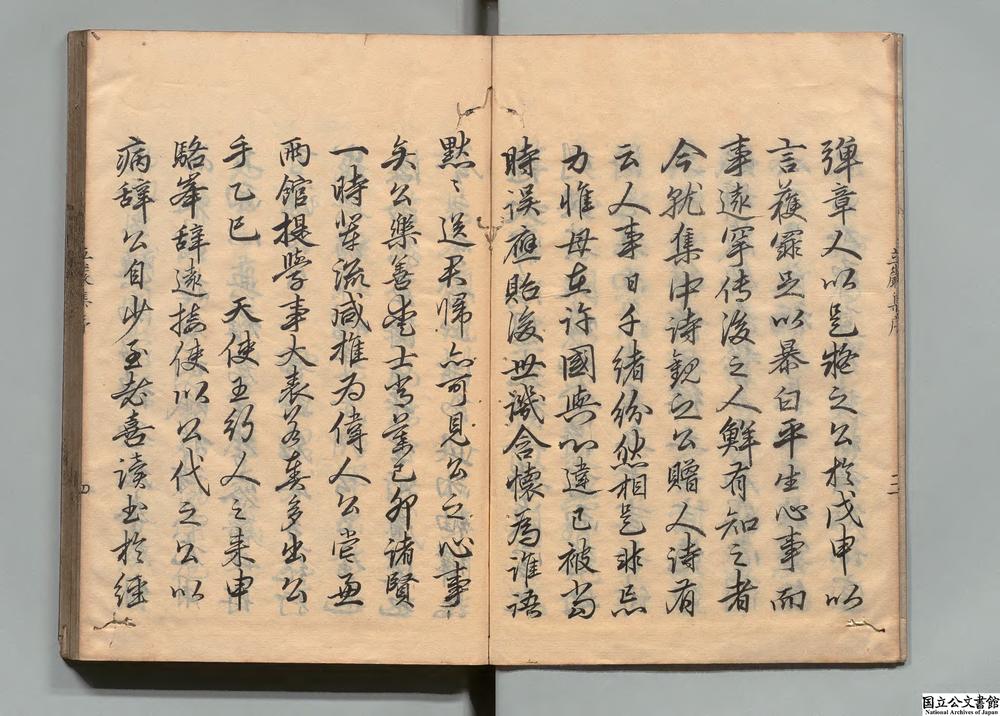 弾章人以是疑之公於戊申以
言獲罪足以暴白平生心事而
事遠罕傳後之人鮮有知之者
今就集中詩觀之公贈人詩有
云人事日千緒紛然相是非忘
力惟母在許國與心違已被當
時誤應貽後世譏含懷為誰語
黙〻送君歸亦可見公之心事
矣公樂善愛士當薦己卯諸賢
一時荐流咸推為偉人公嘗典
兩館提學事大表若箋多出公
手乙巳 天使王約人之来申
駱峯辭遠接使以公代之公以
病辭公自少至老喜讀書於經
三
四
国立公文書館
National Archives of Japan